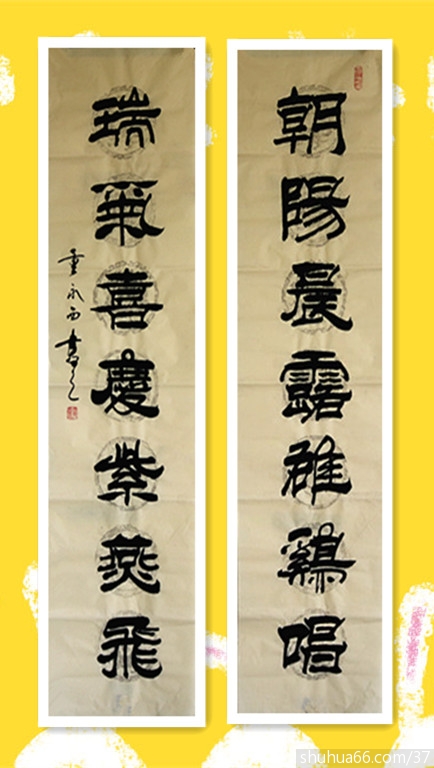 朝陽晨露雄鷄唱
瑞氣喜慶紫燕飛
書之
shuhua66.com/37